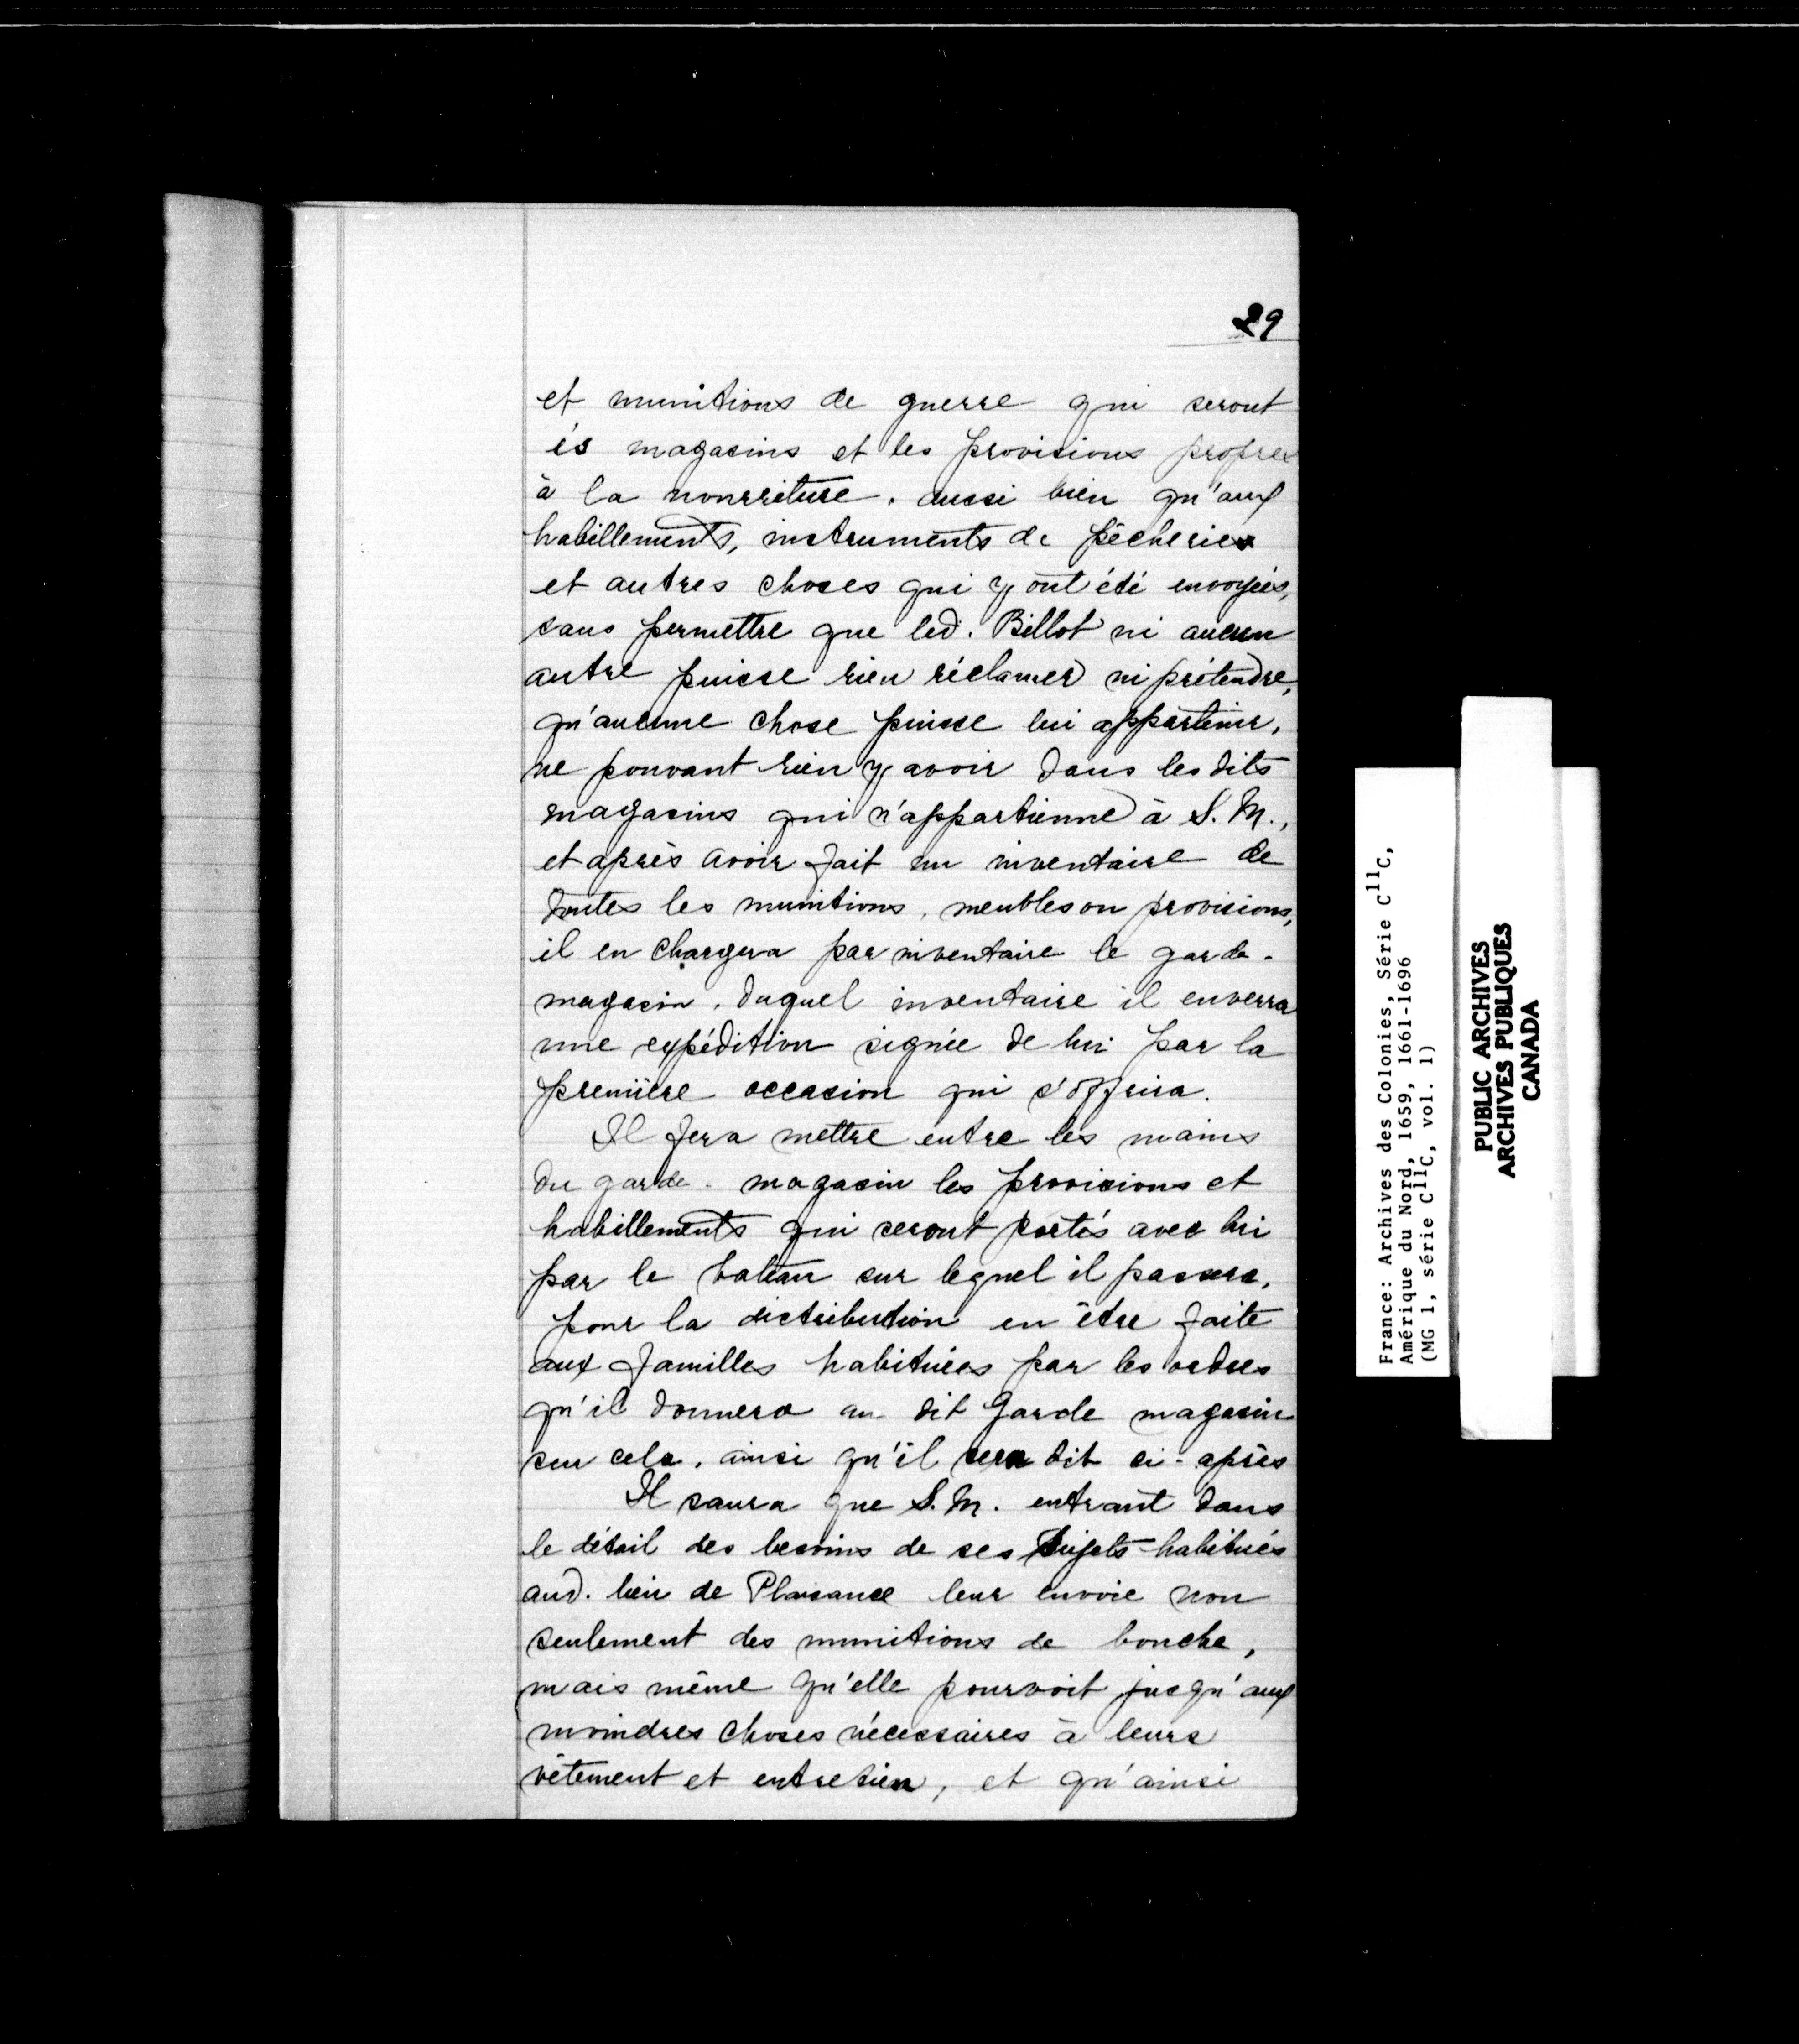 29
et munitions de guerre qui seront
ès magasins et les provisions propres
à la nourriture, aussi bien qu'aux
habillements, instruments de pêcheries
et autres choses qui y ont été envoyées,
sans permettre que led. Billot ni aucun
autre puisse rien réclamer ni prétendre,
qu'aucune chose puisse lui appartenir,
ne pouvant rien y avoir dans les dits
magasins qui n'appartienne à S. M.,
et après avoir fait un inventaire de
toutes les munitions, meubles ou provisions,
il en chargera par inventaire le garde-
magasin, duquel inventaire il enverra
une expédition signée de lui par la
première occasion qui s'offrira.
Il fera mettre entre les mains
du garde-magasin les provisions et
habillements qui seront portés avec lui
par le bateau sur lequel il passera,
pour la distribution en être faite
aux familles habituées par les ordres
qu'il donnera au dit Garde magasin
sur cela, ainsi qu'il sera dit ci-après
Il saura que S. M. entrant dans
le détail des besoins de ses Sujets habitués
aud. lieu de Plaisance leur envoie non
seulement des munitions de bouche,
mais même qu'elle pourvoit jusqu'aux
moindres choses nécessaires à leurs
vêtement et entretien, et qu'ainsi
France: Archives des Colonies, Série C11C,
Amérique du Nord, 1659, 1661-1696
(MG 1, série C11C, vol. 1)
PUBLIC ARCHIVES
ARCHIVES PUBLIQUES
CANADA